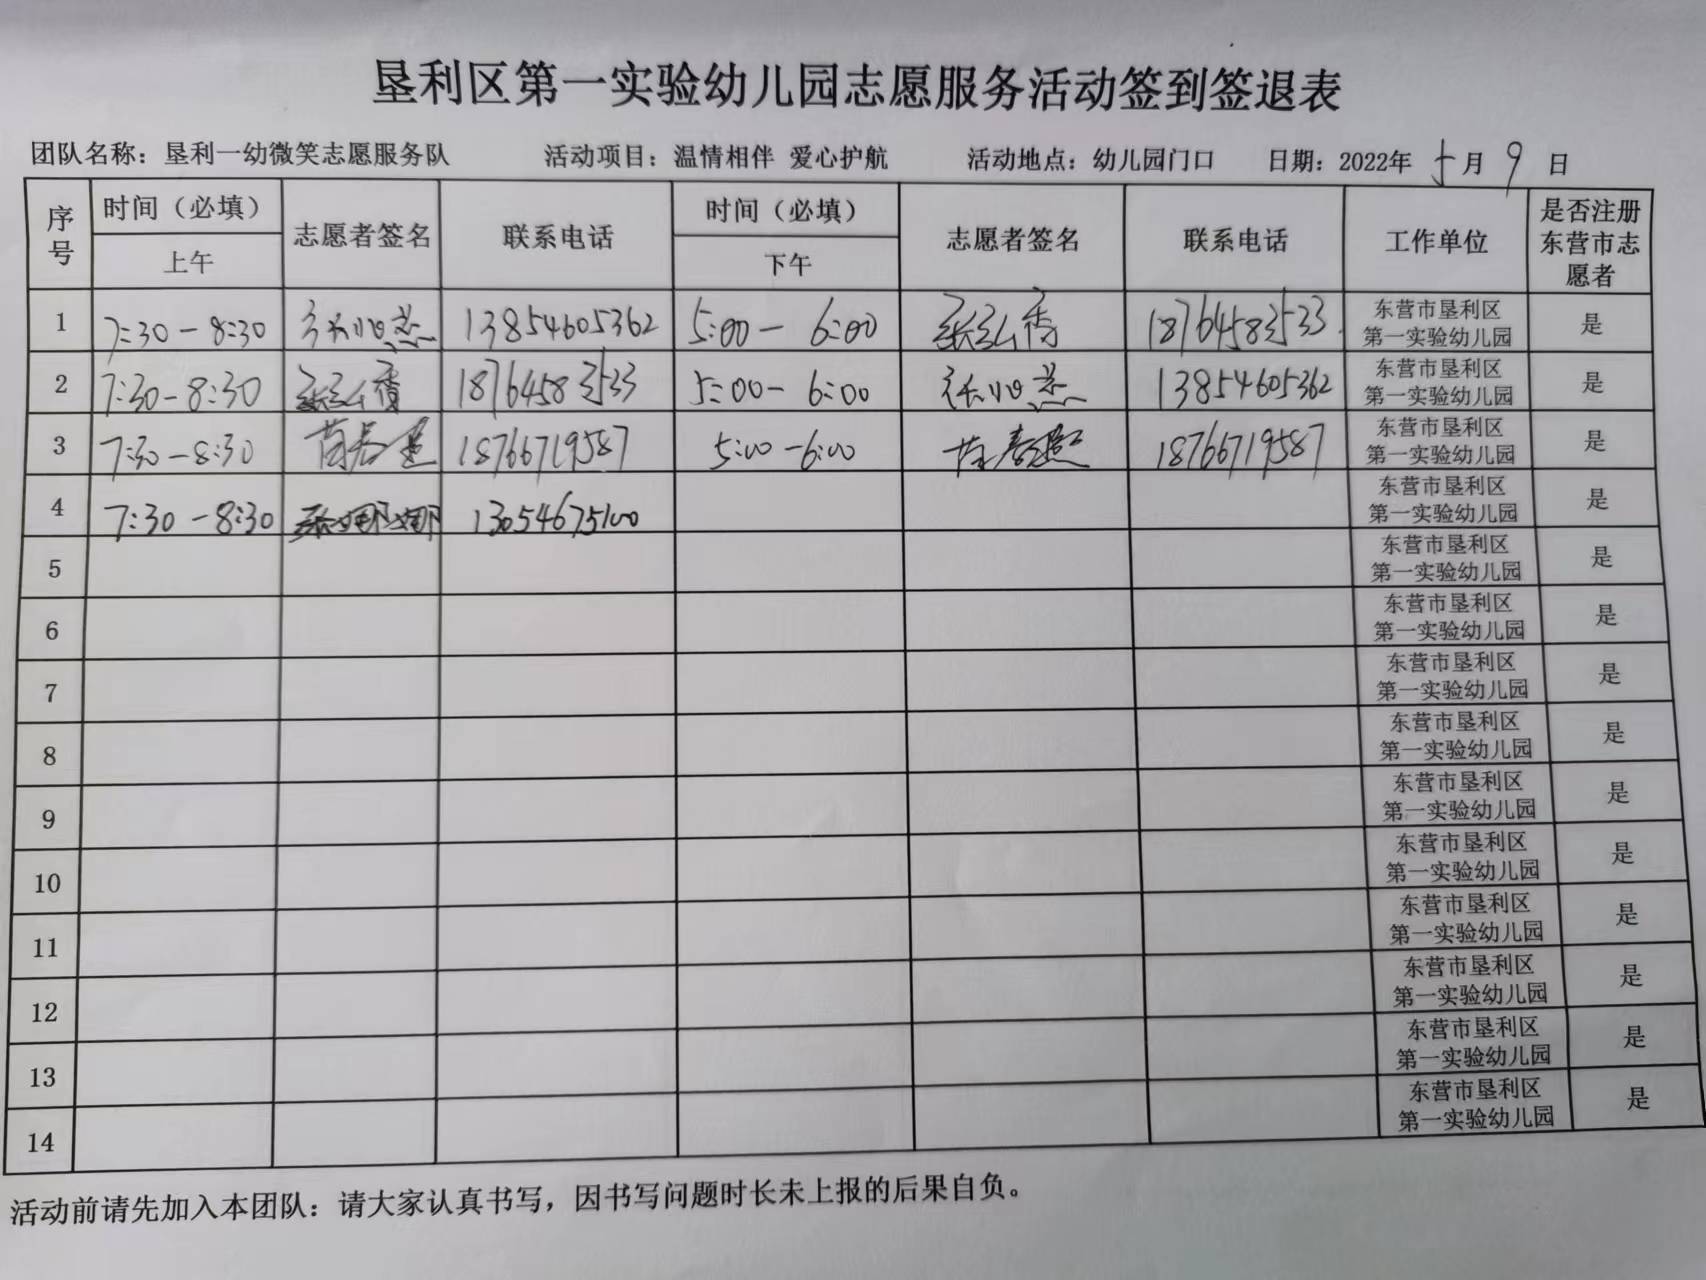 垦利区第一实验幼儿园志愿服务活动签到签退表
团队名称：垦利一幼微笑志愿服务队 活动项目：温情相伴 爱心护航 活动地点：幼儿园门口 日期：2022年 5月 9 日
序号 时间（必填） 上午 志愿者签名 联系电话 时间（必填） 下午 志愿者签名 联系电话 工作单位 是否注册东营市志愿者
1 7:30-8:30 13854605362 5:00-6:00 18764583533 东营市垦利区第一实验幼儿园 是
2 7:30-8:30 18764583533 5:00-6:00 13854605362 东营市垦利区第一实验幼儿园 是
3 7:30-8:30 18766719587 5:00-6:00 18766719587 东营市垦利区第一实验幼儿园 是
4 7:30-8:30 张娜娜 13054675100 东营市垦利区第一实验幼儿园 是
5 东营市垦利区第一实验幼儿园 是
6 东营市垦利区第一实验幼儿园 是
7 东营市垦利区第一实验幼儿园 是
8 东营市垦利区第一实验幼儿园 是
9 东营市垦利区第一实验幼儿园 是
10 东营市垦利区第一实验幼儿园 是
11 东营市垦利区第一实验幼儿园 是
12 东营市垦利区第一实验幼儿园 是
13 东营市垦利区第一实验幼儿园 是
14 东营市垦利区第一实验幼儿园 是
活动前请先加入本团队：请大家认真书写，因书写问题时长未上报的后果自负。